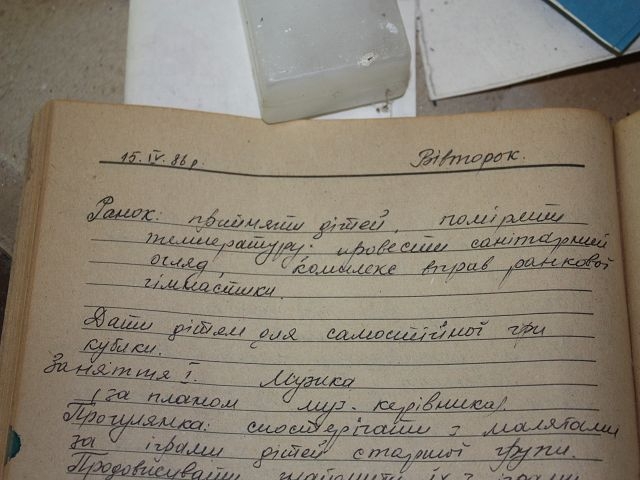 15. IV. 86 р. Вівторок.
Ранок: прийняти дітей, поміряти
температуру; провести санітарний
огляд, комплекс вправ ранкової
гімнастики.
Дати дітям для самостійної гри
кубики.
Заняття I. Музика
(за планом муз. керівника).
Прогулянка: спостерігати з малятами
за іграми дітей старшої групи.
Продовжувати знайомити їх з іграми